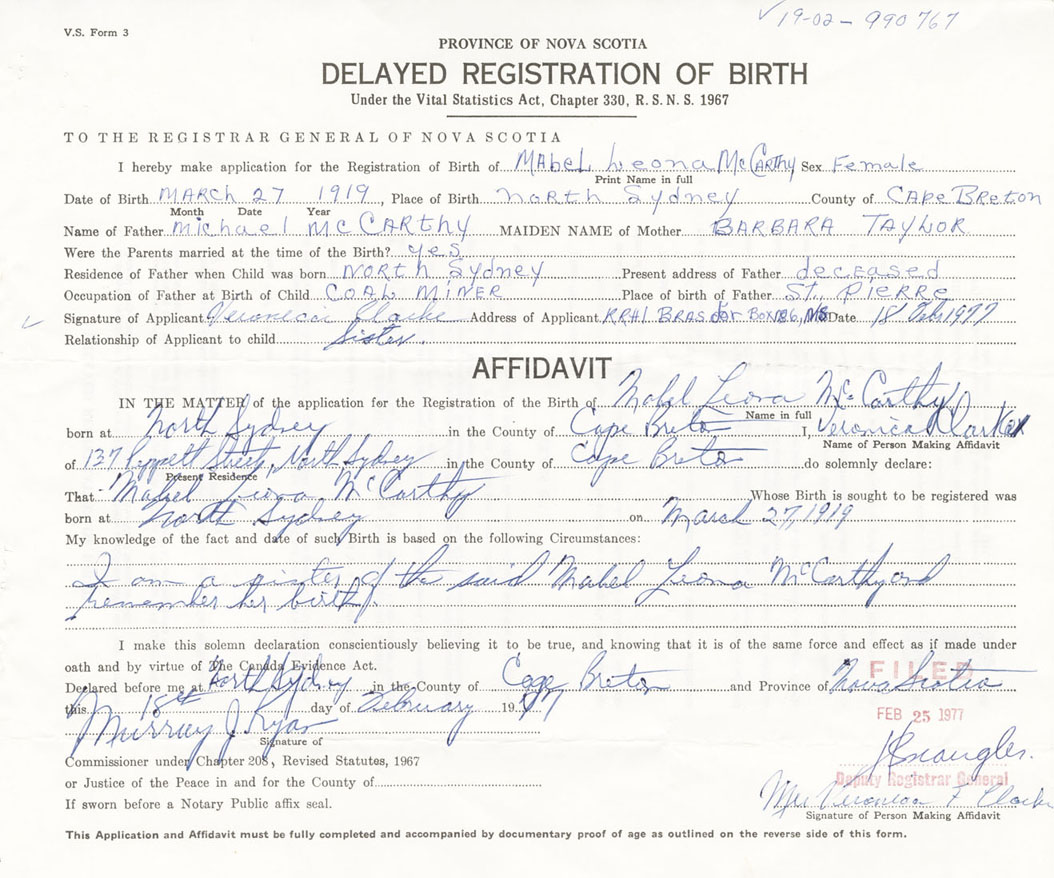 19-02-990767
V.S. Form 3
PROVINCE OF NOVA SCOTIA
DELAYED REGISTRATION OF BIRTH
Under the Vital Statistics Act, Chapter 330, R. S. N. S. 1967
TO THE REGISTRAR GENERAL OF NOVA SCOTIA
I hereby make application for the Registration of Birth of MAbeL Leona McCARthy Sex Female
Print Name in full
Date of Birth MARCh 27 1919, Place of Birth North Sydney County of CAPe BReton
Month Date Year
Name of Father Michael McCARthy MAIDEN NAME of Mother BARBARA TAYLOR
Were the Parents married at the time of the Birth? yes
Residence of Father when Child was born NORth Sydney Present address of Father deceased
Occupation of Father at Birth of Child COAL MINER Place of birth of Father ST. PIERRE
Signature of Applicant Veronica Clarke Address of Applicant RR#1 BRAS d'or Box 126, NS Date 18 Feb 1977
Relationship of Applicant to child Sister.
AFFIDAVIT
IN THE MATTER of the application for the Registration of the Birth of Mabel Leona McCarthy
Name in full
born at North Sydney in the County of Cape Breton I, Veronica Clarke
Name of Person Making Affidavit
of 137 Street, North Sydney in the County of Cape Breton do solemnly declare:
Present Residence
That Mabel Leona McCarthy Whose Birth is sought to be registered was
born at North Sydney on March 27, 1919
My knowledge of the fact and date of such Birth is based on the following Circumstances:
I am a sister of the said Mabel Leona McCarthy and
remember her birth.
I make this solemn declaration conscientiously believing it to be true, and knowing that it is of the same force and effect as if made under
oath and by virtue of The Canada Evidence Act.
FILED
Declared before me at North Sydney in the County of Cape Breton and Province of Nova Scotia
this 18th day of February 1977
FEB 25 1977
Murray J. Ryan
Signature of
Commissioner under Chapter 208, Revised Statutes, 1967
Deputy Registrar General
or Justice of the Peace in and for the County of
Mrs Veronica F Clarke
If sworn before a Notary Public affix seal.
Signature of Person Making Affidavit
This Application and Affidavit must be fully completed and accompanied by documentary proof of age as outlined on the reverse side of this form.